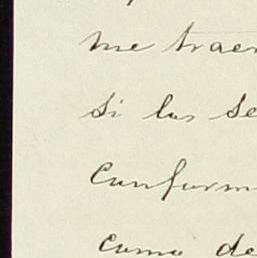 me traer
si los se
Conform
como de